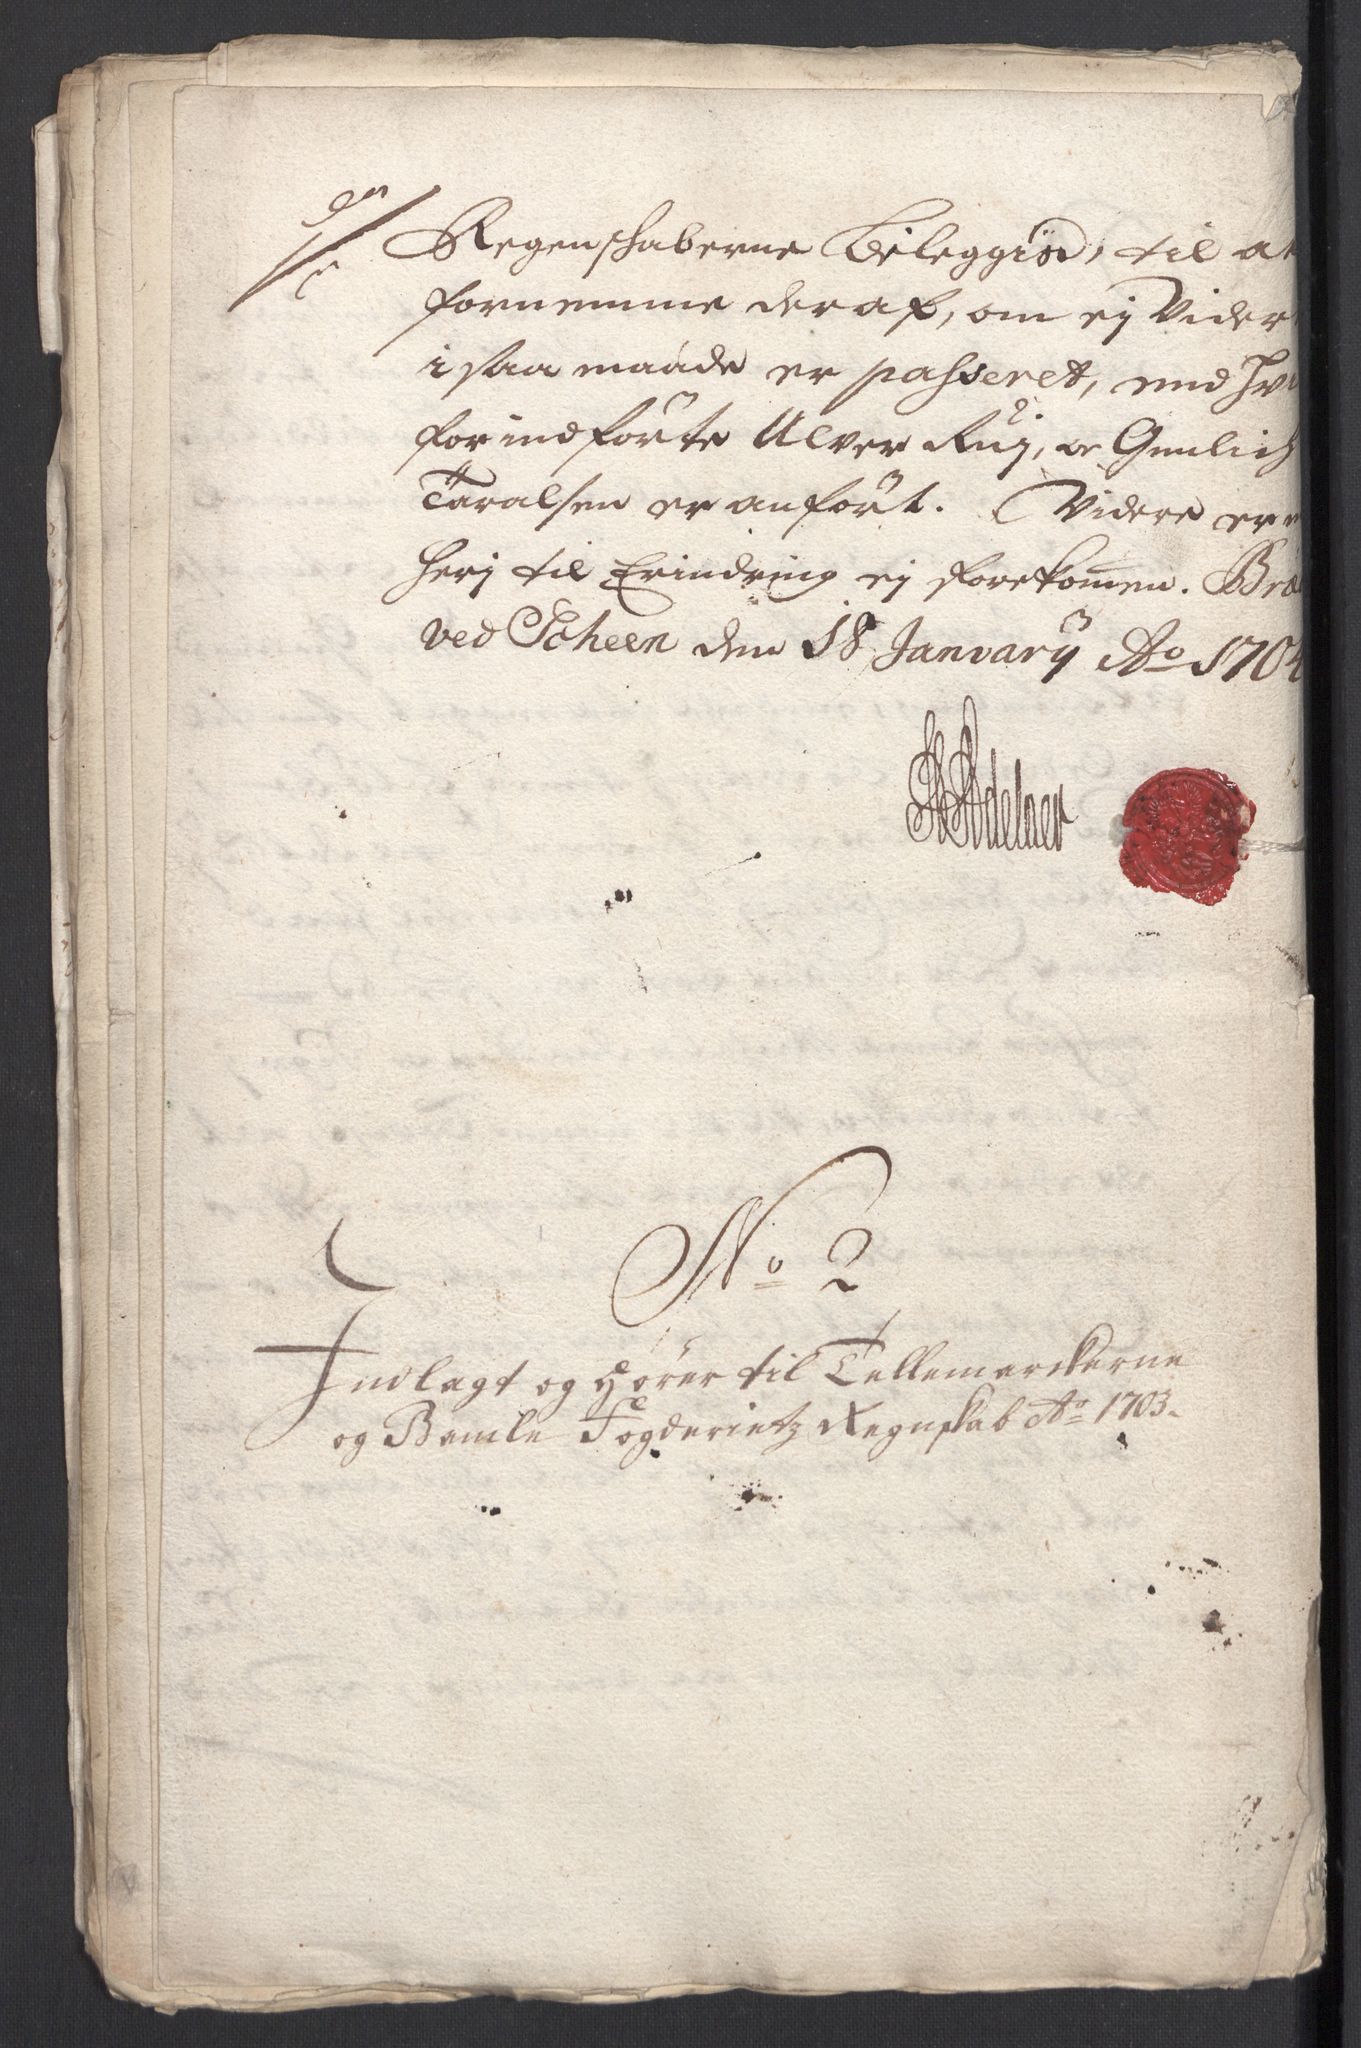 Regenschaberne Beleggis, til at
fornemme deraf, om ej Vider
i saa maade er passeret, end Hvi
for indførte Ulver Ruj, oc Gunlich
Taralsen er anført. Videre er
herj til Erindring ej forekomen. Bra
ved Scheen den 18 Januarÿ Ao 1704
Adelaer
No 2
Indlagt og hører til Tellemarckerne
og Bamle Fogderietz Regnskab Ao 1703.